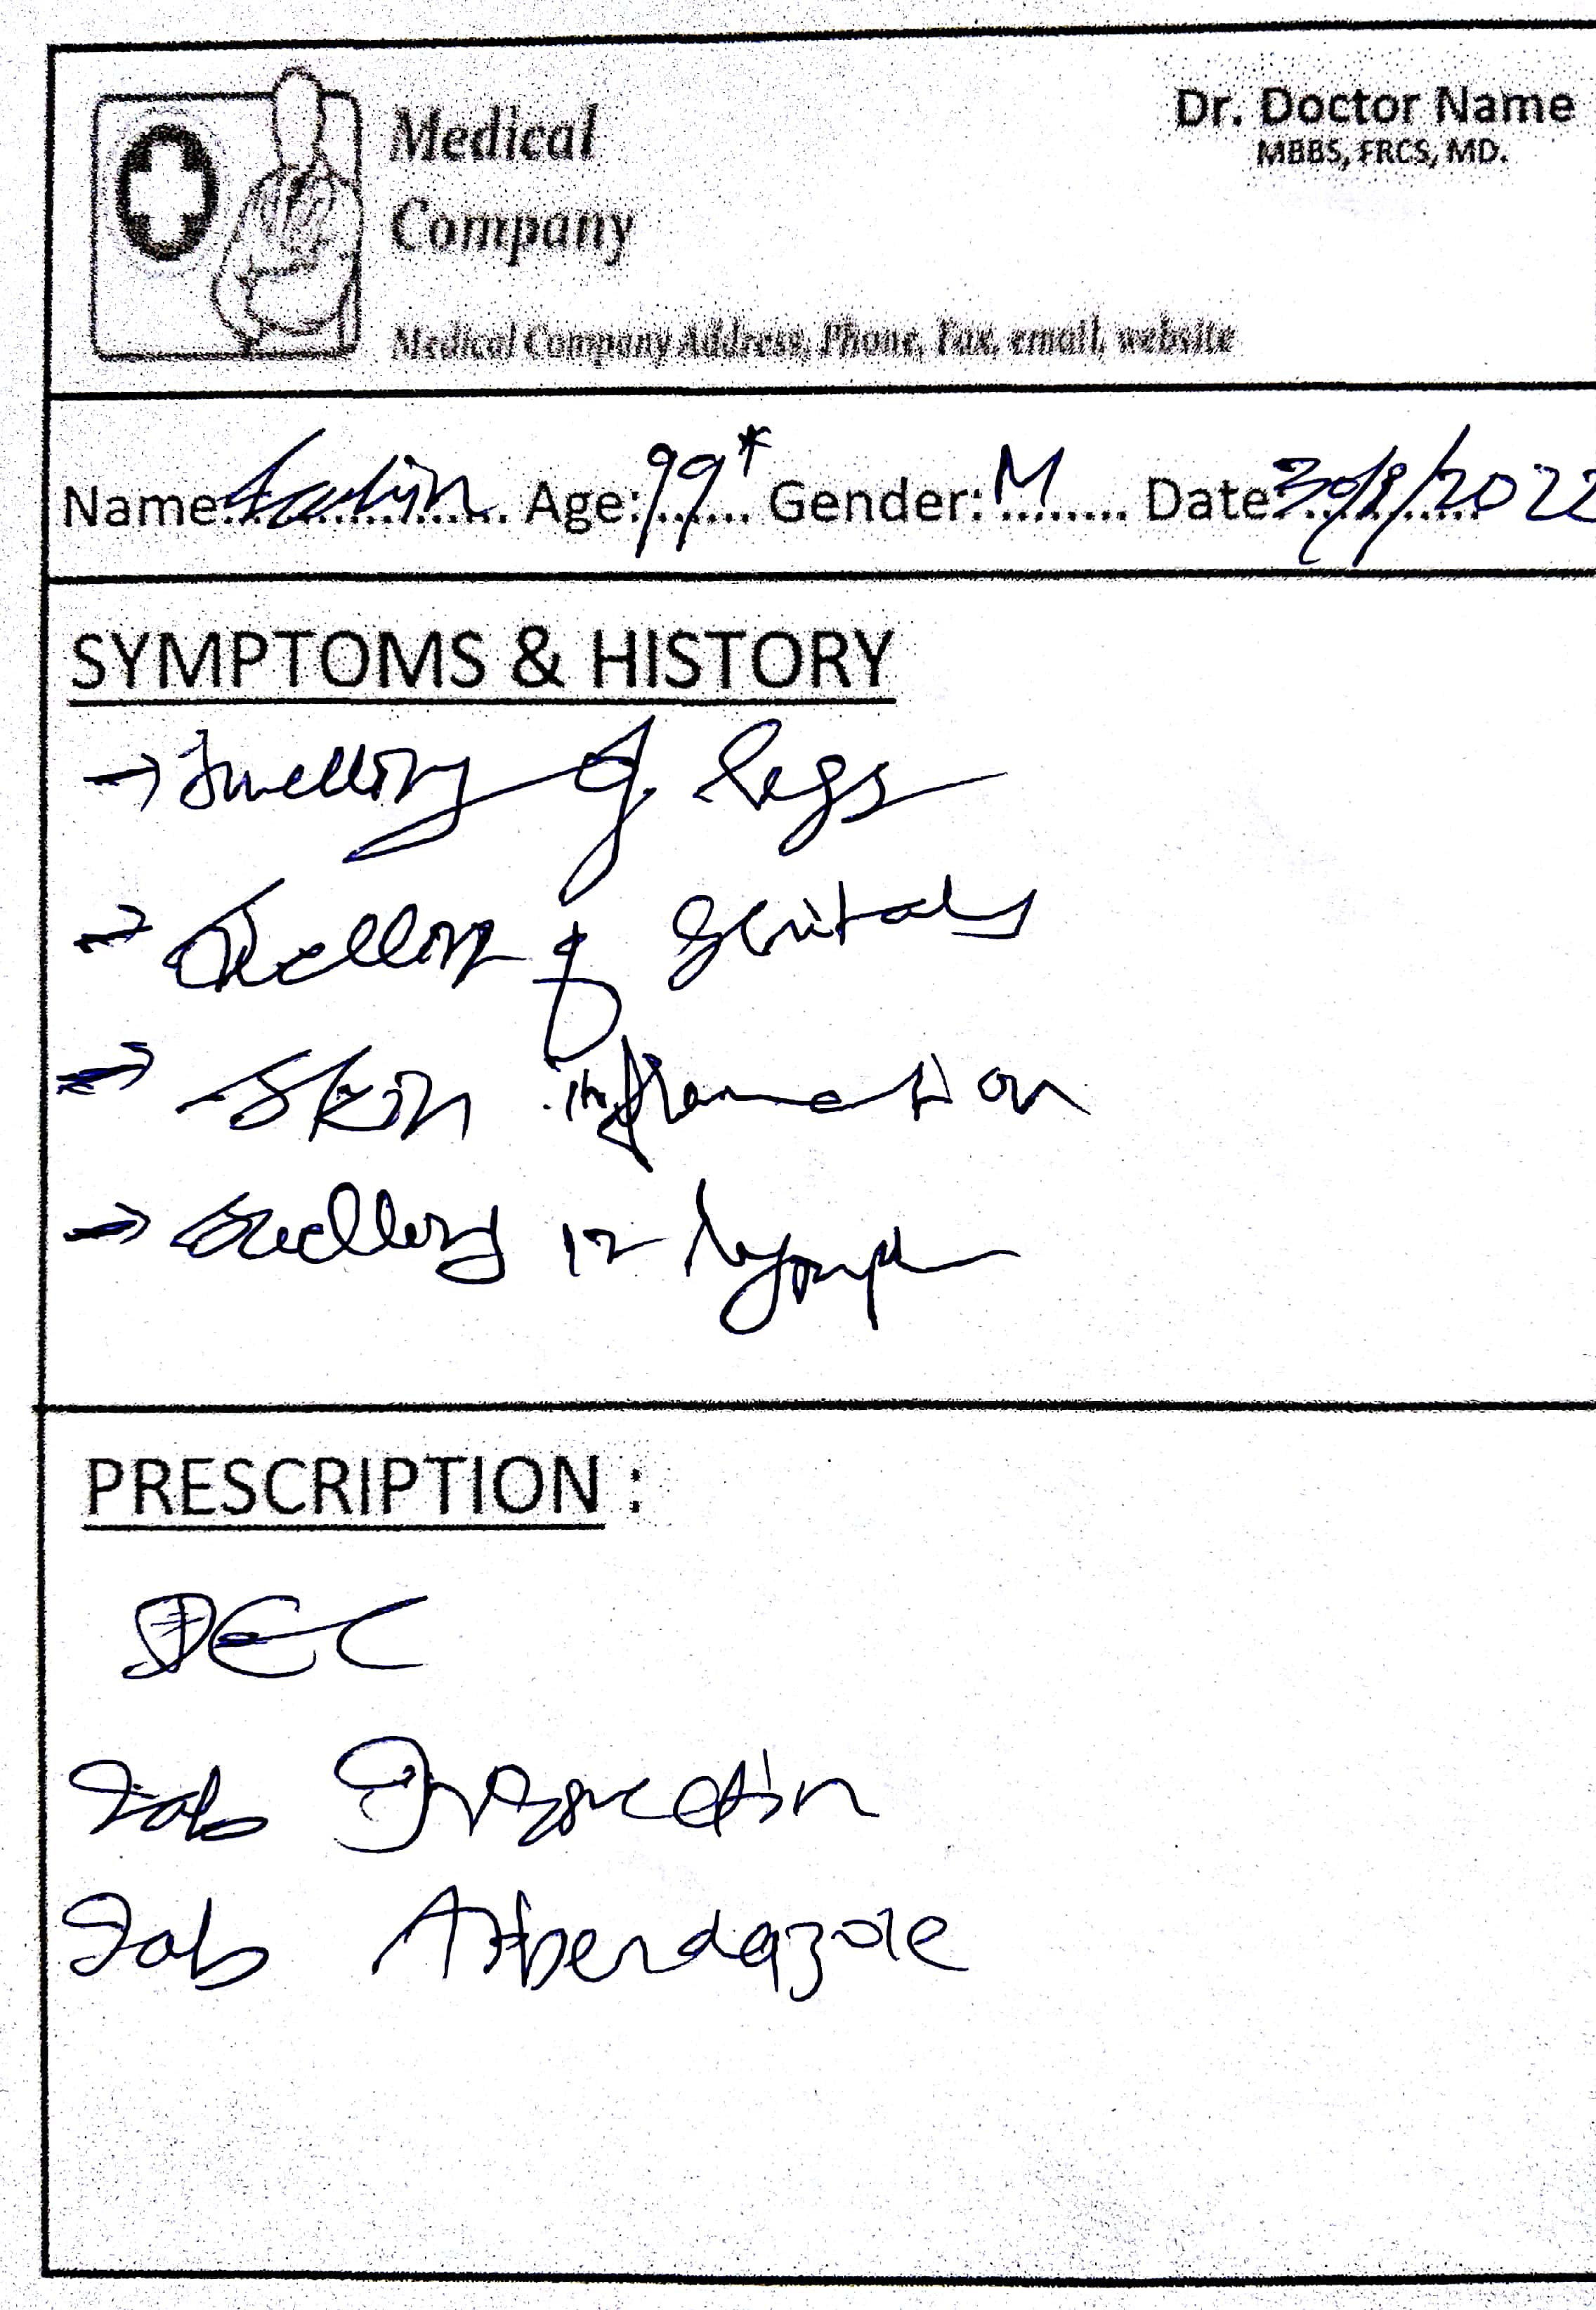 Medical
Company
Dr. Doctor Name
MBBS, FRCS, MD.
Medical Company Address, Phone, Fax, email, website
Name: Age: 99 Gender: M Date: 30/9/2022
SYMPTOMS & HISTORY
→ Swelling of legs
→ Swelling of genitals
→ Skin inflamation
→ Swelling in lymph
PRESCRIPTION :
DEC
Tab Ivermectin
Tab Albendazole